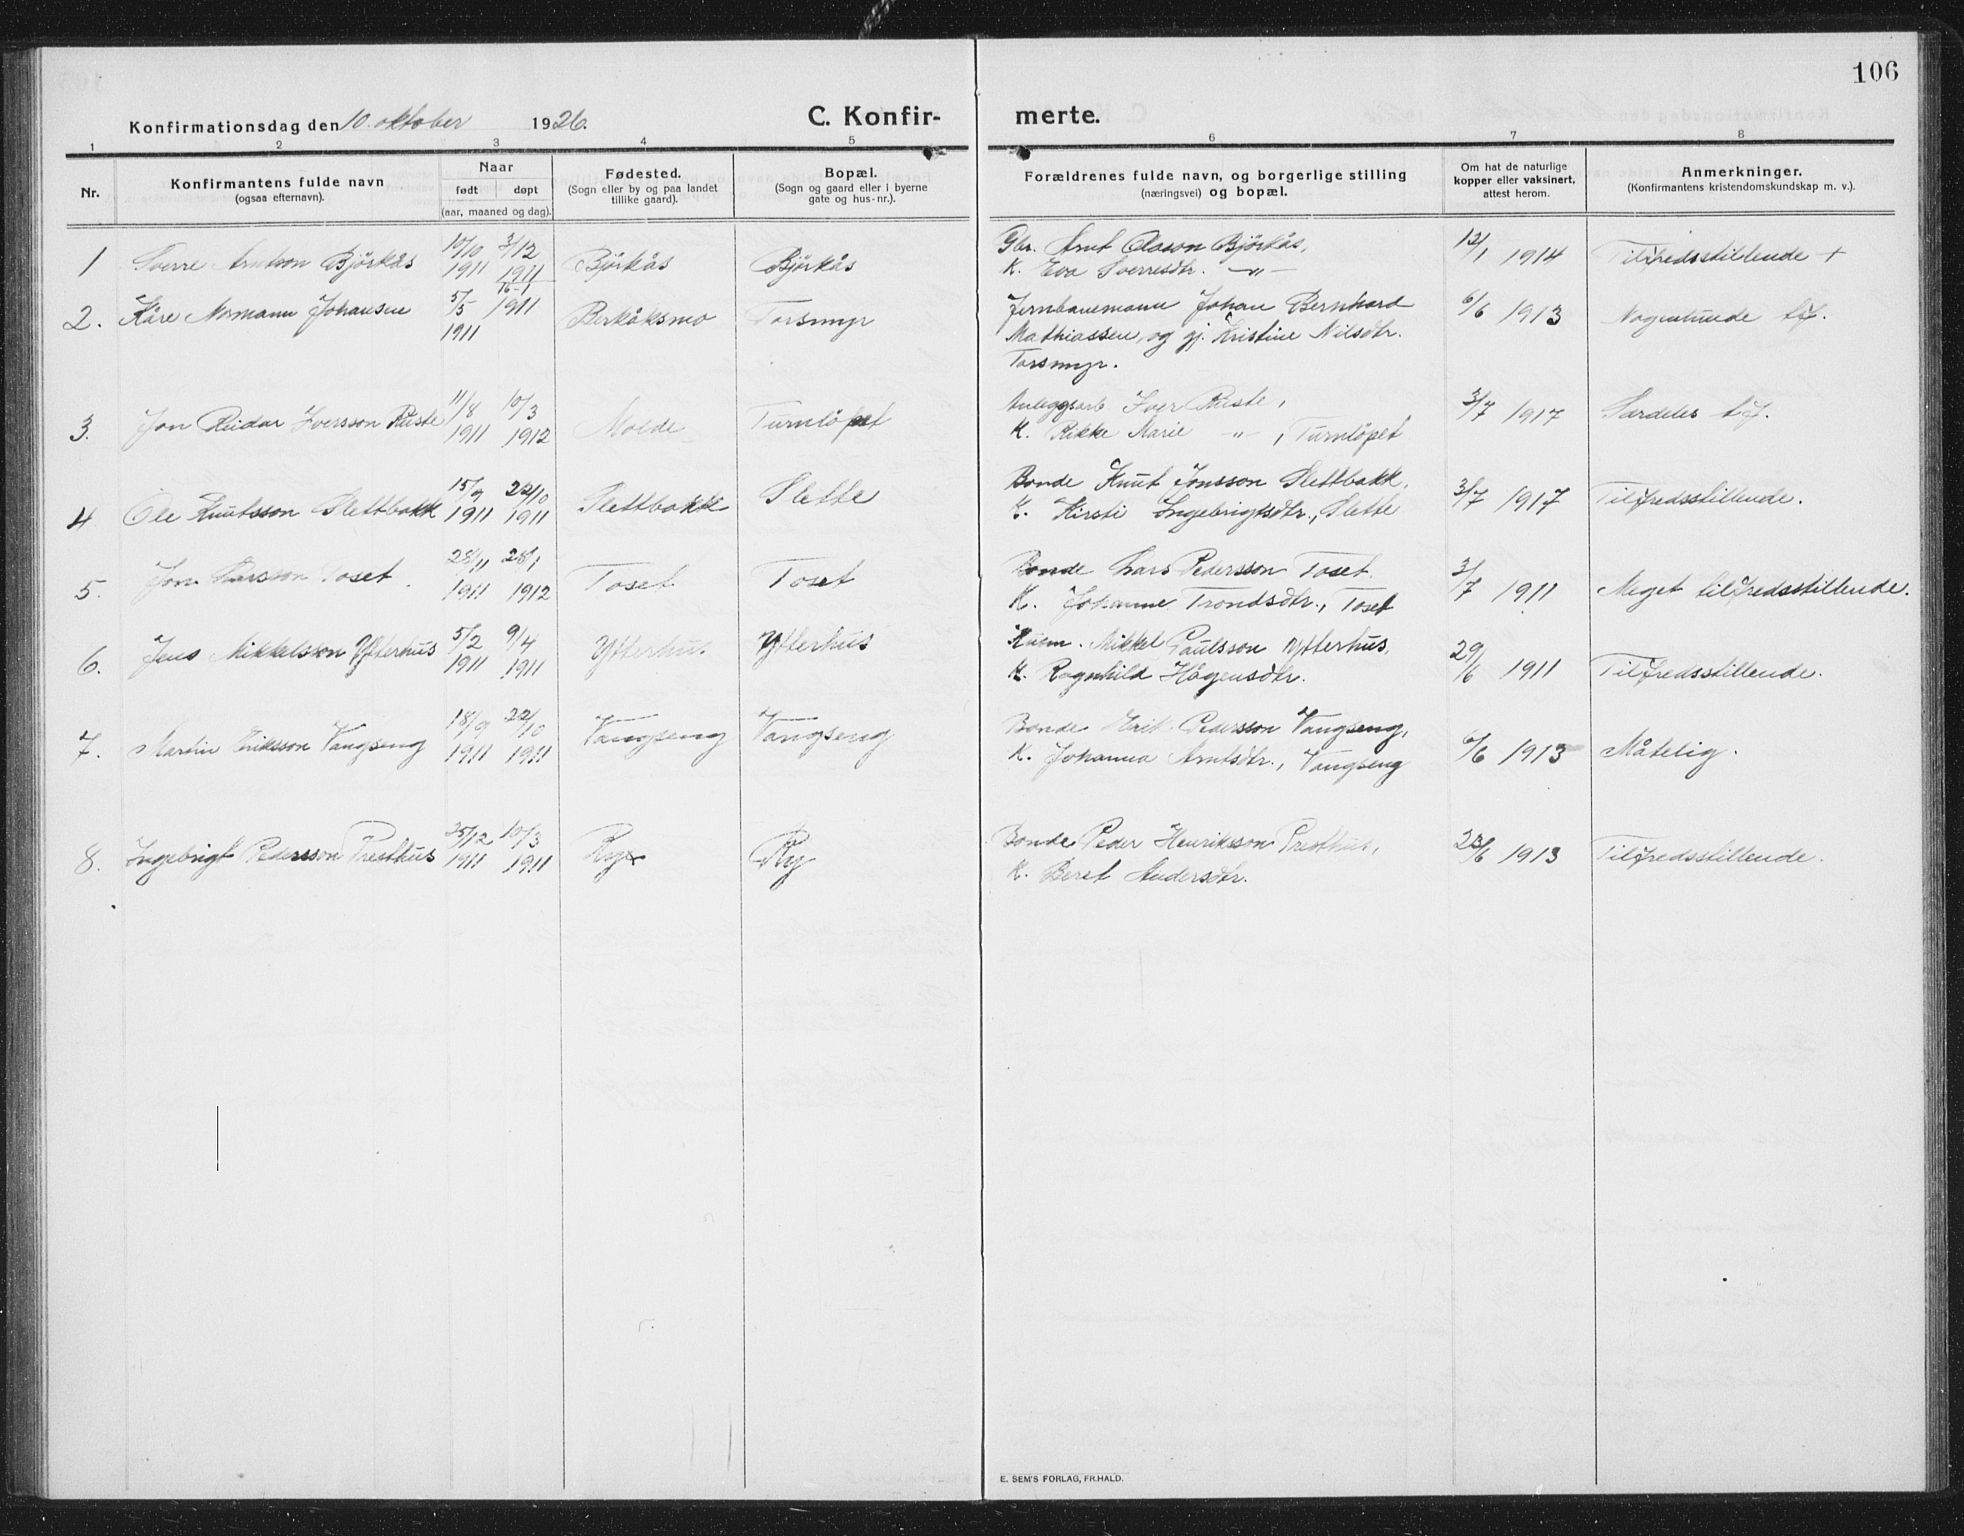 106
Konfirmationsdag den 10. oktober 1926. C. Konfir- merte.
1 2 3 4 5 6 7 8
Nr. Konfirmantens fulde navn (ogsaa efternavn). Naar født døpt (aar, maaned og dag). Fødested. (Sogn eller by og paa landet tillike gaard). Bopæl. (Sogn og gaard eller i byerne gate og hus-nr.). Forældrenes fulde navn, og borgerlige stilling (næringsvei) og bopæl. Om hat de naturlige kopper eller vaksinert, attest herom. Anmerkninger. (Konfirmantens kristendomskundskap m. v.).
10/10 3/12 Gbr. Arnt Olason Björkås, 12/1 1914
1 Sverre Arntson Björkås 1911 1911 Björkås Björkås K. Eva Sverresdtr. -„- Tilfredsstillende +
16-1
2. Kåre Normann Johansen 5/5 1911 Berkåksmo Torsmyr Jernbanemann Johan Bernhard 6/6 1913 Nogenlunde tf.
1911 Mathiassen, og gj. Kristine Nilsdtr.
Torsmyr.
11/8 10/3 Anleggsarb. Iver Ruste, 3/7 1917 Særdeles tf.
3. Jon Reidar Iversson Ruste 1911 1912 Molde Turnlöpet K. Rikke Marie -„-, Turnlöpet
15/9 22/10 Slette Bonde Knut Jonsson Slettbakk, 3/7 1917 Tilfredsstillende.
4 Ole Knutsson Slettbakk 1911 1911 Slettbakk K. Kirsti Ingebrigtsdtr., Slette
28/11 28/1 Bonde Lars Pedersson Toset. 3/7 1911 Meget tilfredsstillende.
5. Jon Larsson Toset. 1911 1912 Toset Toset K. Johanne Trondsdtr., Toset
5/2 9/4 Husm. Mikkel Paulsson Ytterhus, 29/6 1911
6. Jens Mikkelsson Ytterhus 1911 1911 Ytterhus Ytterhus K. Ragnhild Hågensdtr. Tilfredsstillende.
18/9 22/10 Bonde Erik Pedersson Vangseng,
7. Martin Eriksson Vangseng 1911 1911 Vangseng Vangseng K. Johanna Arntsdtr., Vangseng 6/6 1913 Måtelig.
25/12 10/3 Bonde Peder Henriksson Presthus, 23/6 1913 Tilfredsstillende.
8. Ingebrigt Pedersson Presthus 1911 1911 Ry Ry K. Beret Andersdtr.
E. SEM'S FORLAG, FR.HALD.